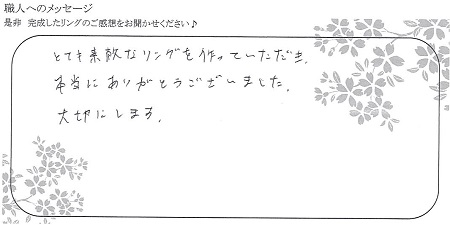 職人へのメッセージ
是非 完成したリングのご感想をお聞かせください♪
とても素敵なリングを作っていただき、
本当にありがとうございました。
大切にします。